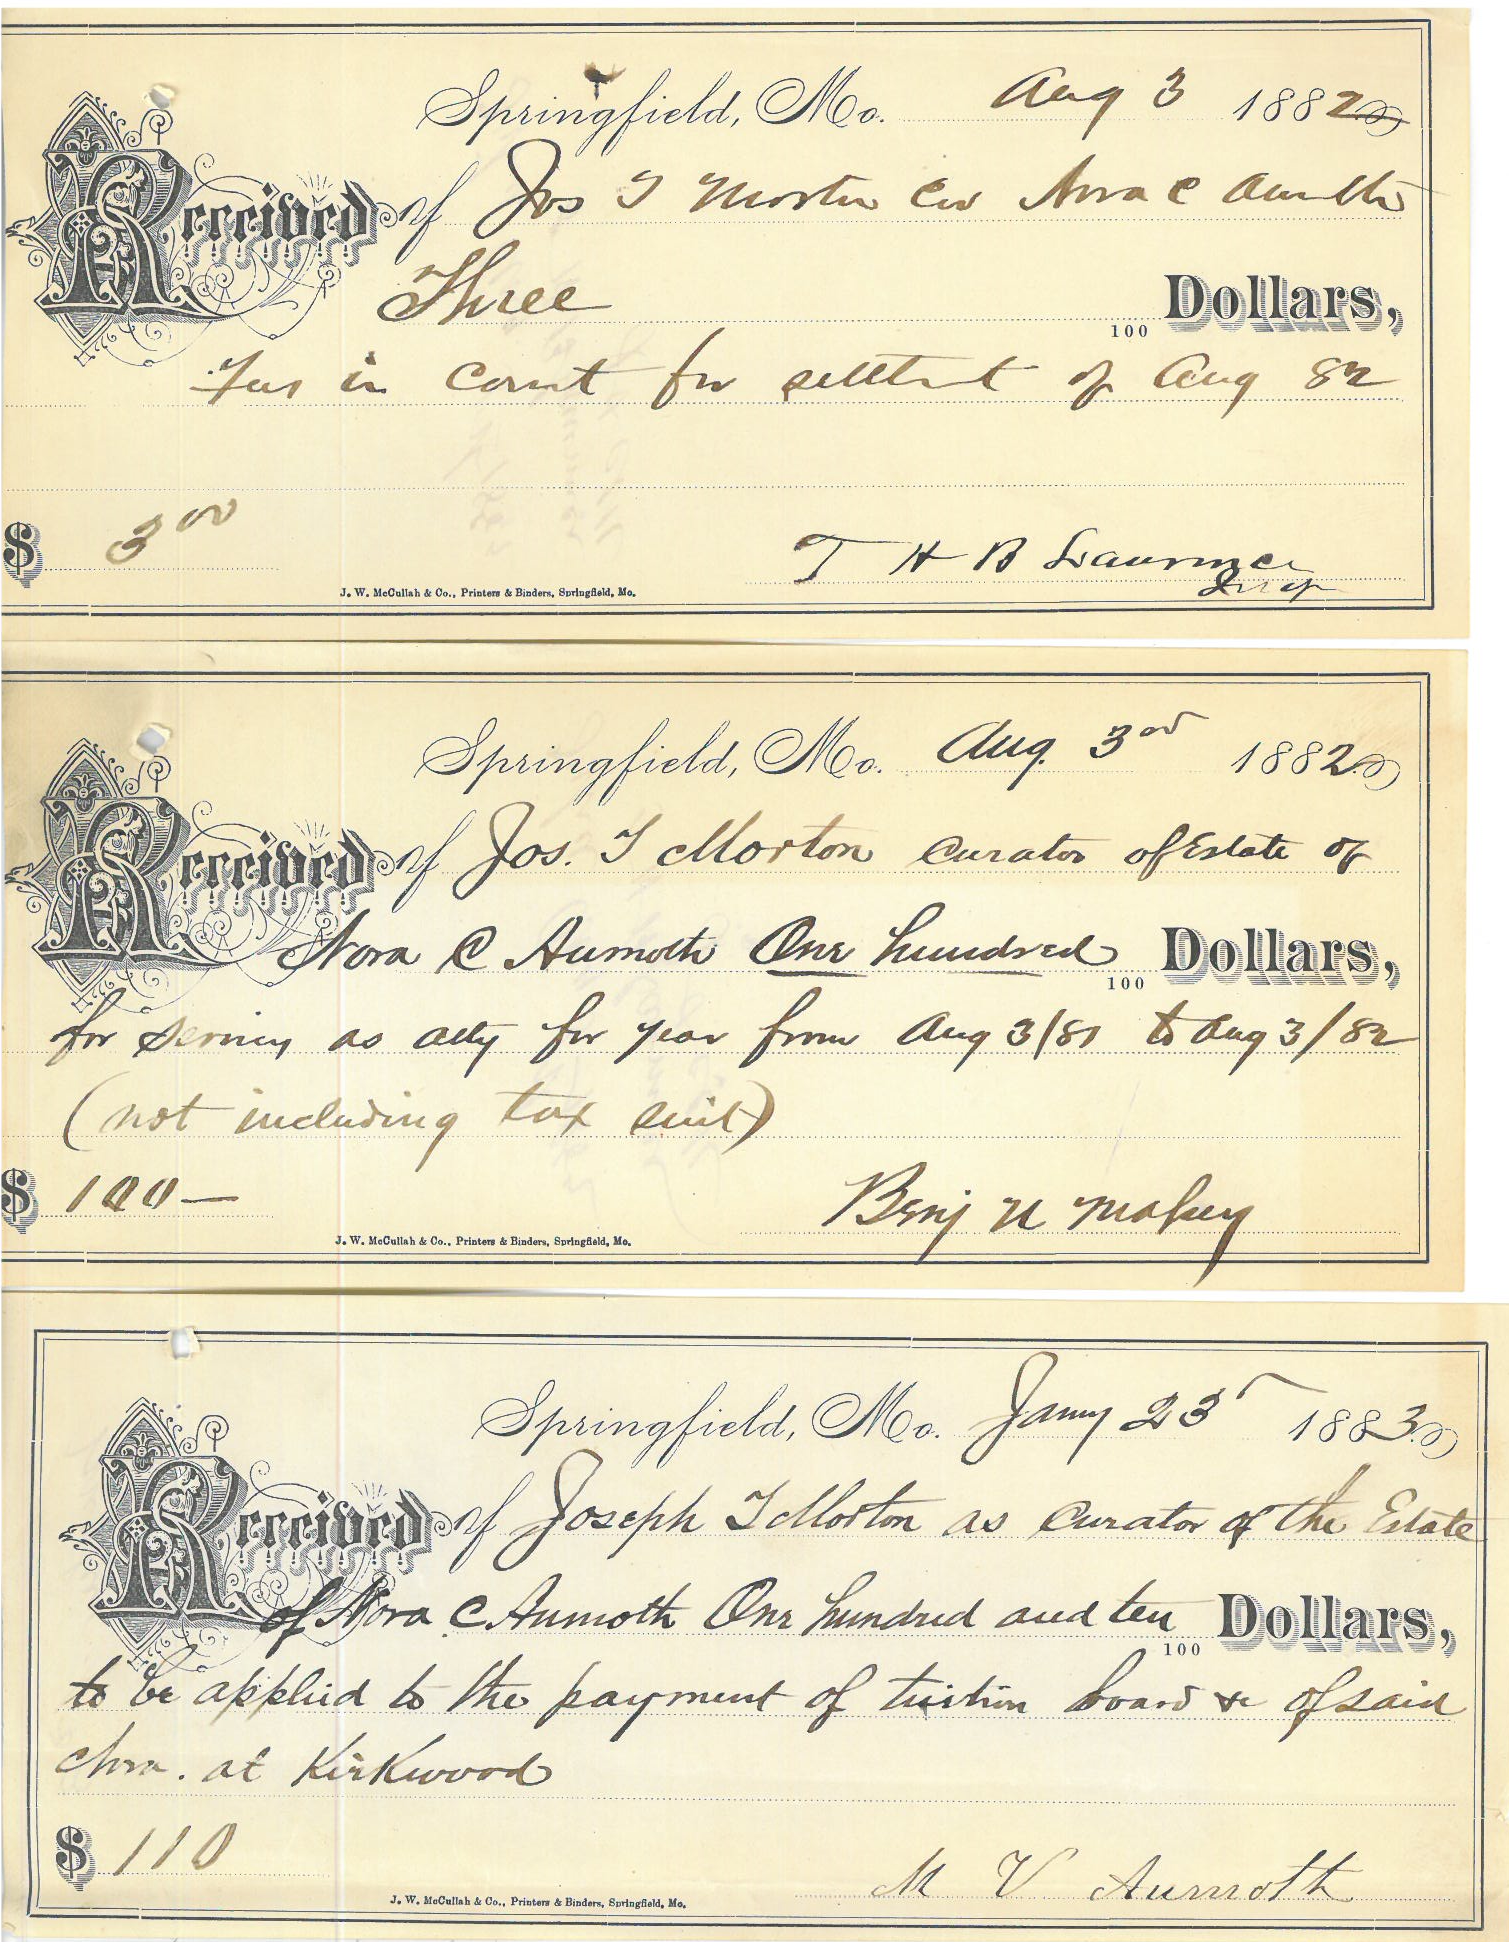 Springfield, Mo. Aug 3 1882
Received of Jos T Morton Cur Nora C Aumoth
Three 100 Dollars,
Fees in Court for settlmt of Aug 82
$ 3 00
T H B Lawrence
J. W. McCullah & Co., Printers & Binders, Springfield, Mo.
Springfield, Mo. Aug. 3rd 1882
Received of Jos. T Morton Curator of Estate of
Nora C Aumoth One hundred 100 Dollars,
for services as atty for year from Aug 3/81 to Aug 3/82
(not including tax suit)
$ 100 —
Benj U Massey
J. W. McCullah & Co., Printers & Binders, Springfield, Mo.
Springfield, Mo. Jany 23 1883
Received of Joseph T Morton as Curator of the Estate
of Nora C Aumoth One hundred and ten 100 Dollars,
to be applied to the payment of tuition board &c of said
Nora. at Kirkwood
$ 110
M V Aumoth
J. W. McCullah & Co., Printers & Binders, Springfield, Mo.